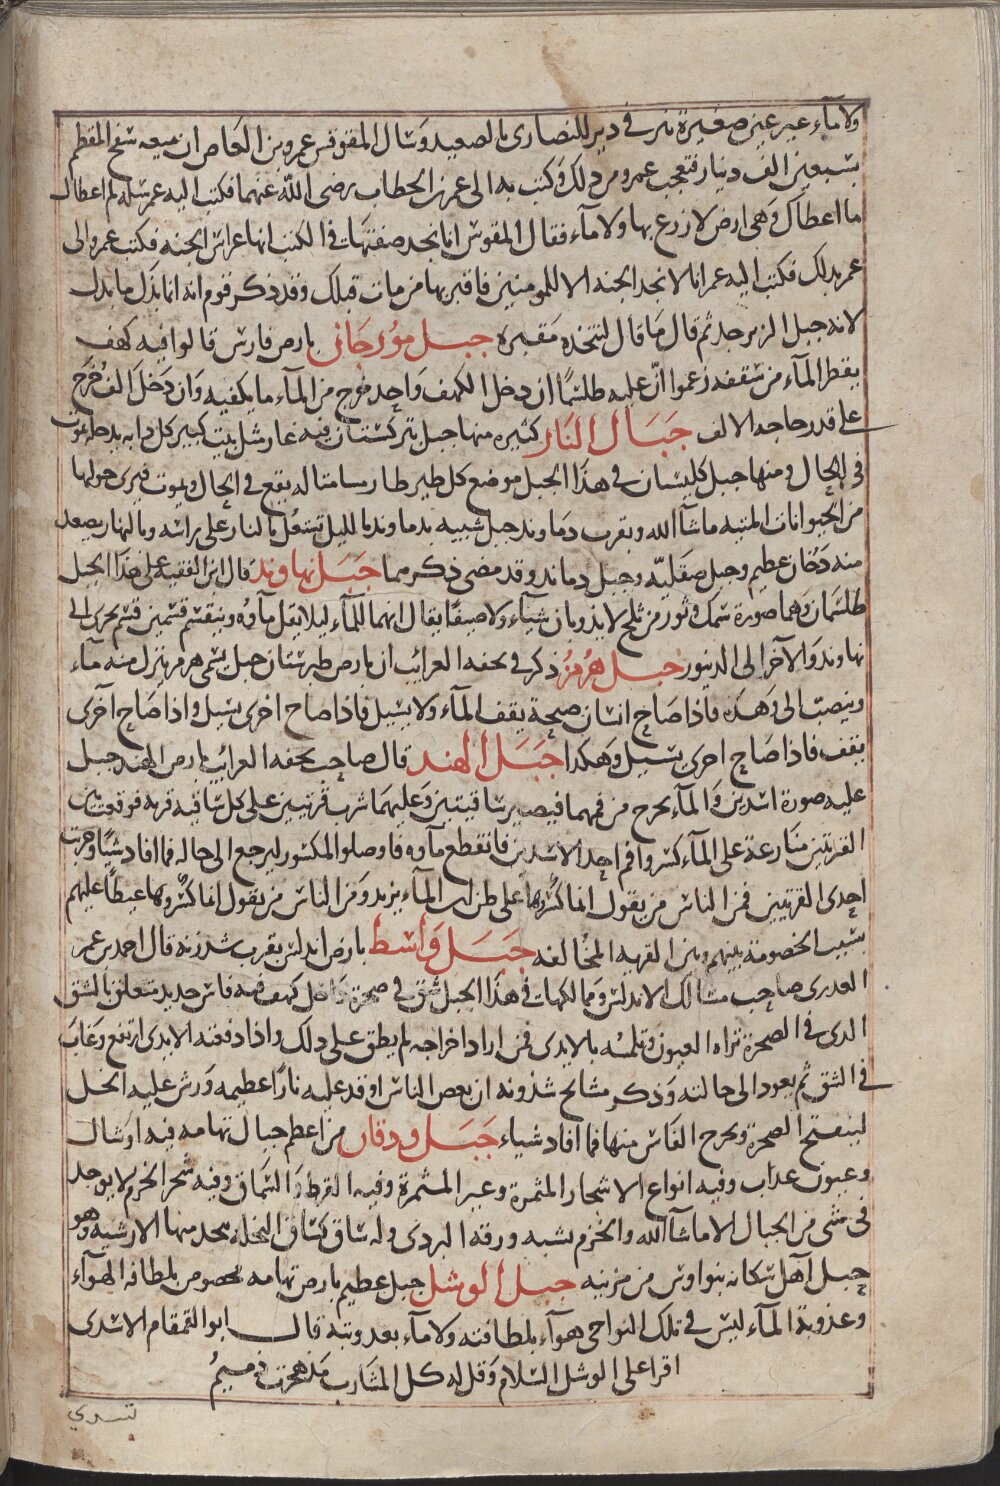 ولا ماء غير عين صغيرة تنز في دير للنصارى بالصعيد وسال المقوقس عمرو بن العاص ان يبيعه سفح المقطم
بسبعين الف دينار فتعجب عمرو من ذلك وكتب به الى عمر بن الخطاب رضي الله عنهما فكتب اليه عمر سله لم اعطاك
ما اعطاك وهي ارض لا زرع بها ولا ماء فقال المقوقس انا نجد صفتها في الكتب انها غراس الجنه فكتب عمرو الى
عمر بذلك فكتب اليه عمر انا لا نجد الجنه الا للمومنين فاقبر بها من مات قبلك وقد ذكر قوم انه انما بذل ما بذل
لانه جبل الزبرجد ثم قال ما قال لتتخذه مقبرة جبل مورجان بارض فارس قالوا فيه كهف
يقطر الماء من سقفه زعموا ان عليه طلسما ان دخل الكهف واحد خرج من الماء ما يكفيه وان دخل الف خرج
على قدر حاجه الالف جبال النار كثيره منها جبل بتركستان فيه غار شبل بيت كبير كل دابه يدخله تموت
في الحال ومنها جبل كلبسان في هذا الجبل موضع كل طير طار مسامتا له يقع في الحال ويموت فيرى حولها
من الحيوانات الميته ما شا الله وبقرب دماوند جبل شبيه بدماوند بالليل تشتعل بالنار على راسه وبالنهار يصعد
منه دخان عظيم وجبل صقليه وجبل دماند وقد مضى ذكرهما جبل نهاوند قال ابن الفقيه على هذا الجبل
طلسمان وهما صورة سمك وثور من ثلج لا يذوبان شتاء ولا صيفا يقال انهما للماء ليلا يقل ماوه وينقسم قسمين قسم يجرى الى
نهاوند والآخر الى الدينور جبل هرمز ذكر في تحفه الغرائب ان بارض طبرستان جبل يسمى هرمز ينزل منه ماء
وينصب الى وهده فاذا صاح انسان صيحة يقف الماء ولا يسيل فاذا صاح اخرى يسيل واذا صاح آخرى
يقف فاذا صاح اخرى يسيل وهكذا جبل الهند قال صاحب تحفه الغرائب بارض الهند جبل
عليه صورة اسدين والماء يخرج من فمهما فيصير ساقيتين وعليهما شرب قريتين على كل ساقيه قريه فوقعت بين
القريتين منازعة على الماء كسروا فم احد الاسدين فانقطع ماوه فاوصلوا المكسور ليرجع الى حاله فما افاد شيا وخربت
احدى القريتين فمن الناس من يقول انما كسروها على ظن ان الماء يزيد ومن الناس من يقول انما كسروها غيظا عليهم
بسبب الخصومة بينهم وبين القريه المخالفه جبل واسط بارض اندلس بقرب شدونه قال احمد بن عمر
العدرى صاحب مسالك الاندلس وممالكها في هذا الجبل شق في صخرة داخل كهف فيه فاس حديد متعلق بالشق
الذى في الصخرة تراه العيون وتلمسه بالايدى فمن اراد اخراجه لم يطق على ذلك واذا دفعته الايدى ارتفع وغاب
في الشق ثم يعود الى حالته وذكر مشايخ شدونه ان بعض الناس اوقد عليه نارا عظيمه ورش عليه الخل
لينفتح الصخرة ويخرج الفاس منها فما افاد شياء جبل ورقان من اعظم جبال تهامه فيه اوشال
وعيون عذاب وفيه انواع الاشجار المثمرة وغير المثمرة وفيه القرظ والسماق وفيه شجر الخزم لا يوجد
في شى من الجبال الا ما شا الله والخزم يشبه ورقه البردى وله ساق كساق النخله يتخذ منها الارشيه وهو
جبل آهل سكانه بنو اوس من مزينه جبل الوشل جبل عظيم بارض تهامه مخصوص بلطافه الهوآء
وعذوبة الماء ليس في تلك النواحي هوآء بلطافته ولا مآء بعذوبته قال ابو القمقام الاسدى
اقرا على الوشل السلام وقل له كل المشارب مذ هجرت ذميم